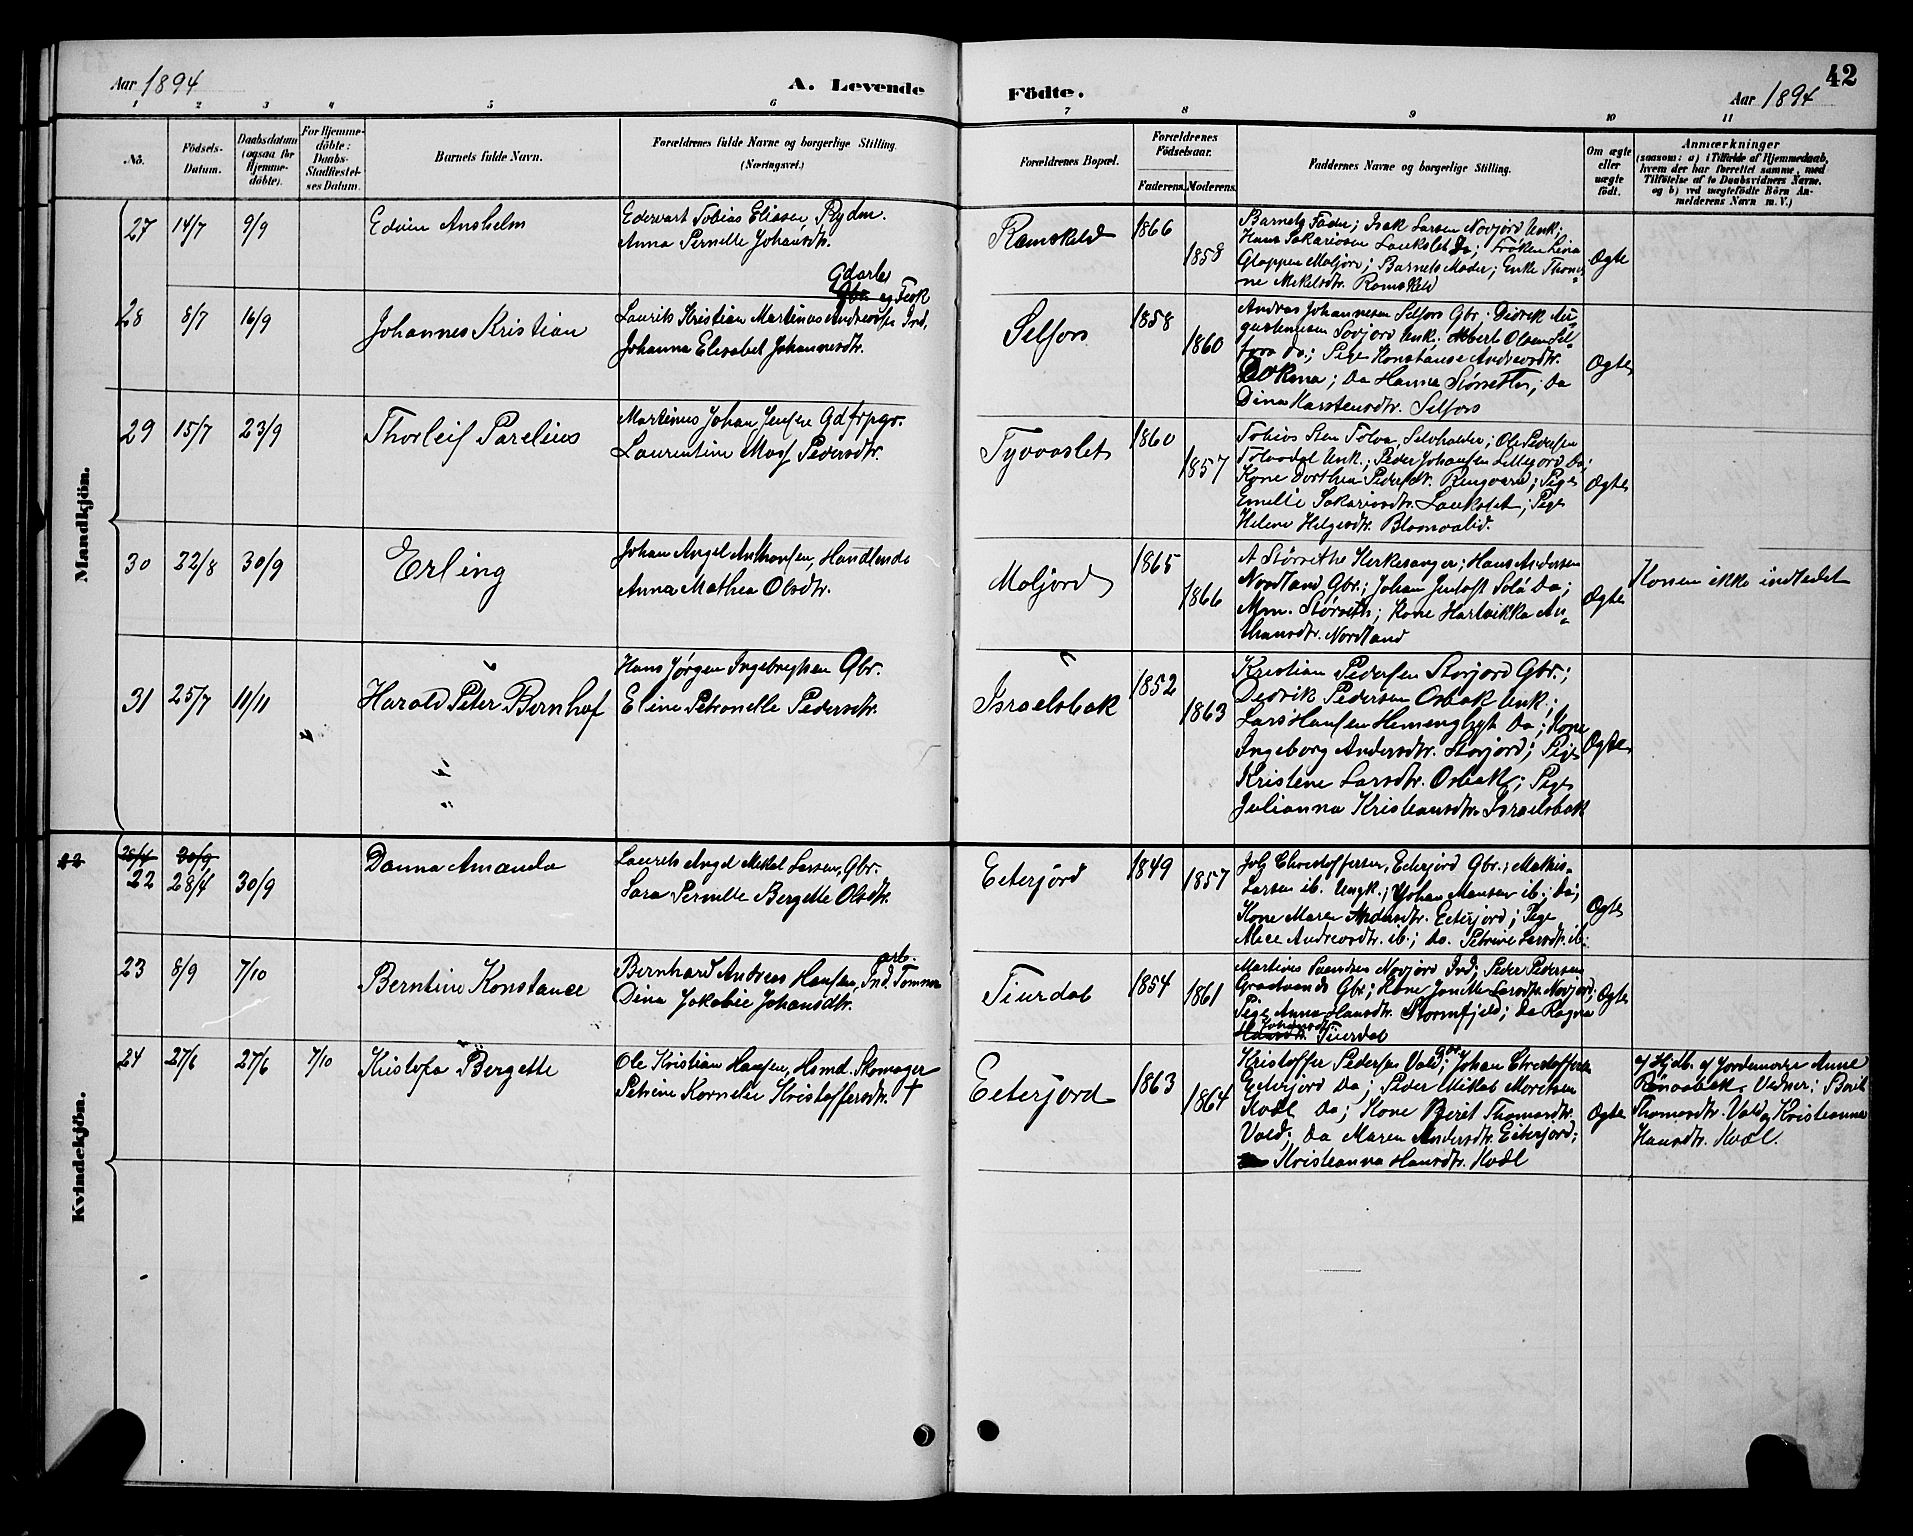 Aar 1894
A. Levende
Födte.
Aar 1894
42
1 2 3 4 5 6 7 8 9 10 11
No.
Födsels-
Datum.
Daabsdatum
(ogsaa for
Hjemme-
döbte).
For Hjemme-
döbte:
Daabs-
Stadfæstel-
ses Datum.
Barnets fulde Navn.
Forældrenes fulde Navne og borgerlige Stilling.
(Næringsvei.)
Forældrenes Bopæl.
Forældrenes
Födselsaar.
Faderens. Moderens.
Faddernes Navne og borgerlige Stilling.
Om ægte
eller
uægte
födt.
Anmærkninger
(saasom: a) i Tilfælde af Hjemmedaab,
hvem der har forrettet samme, med
Tilföielse af to Daabsvidners Navne,
og b) ved uægtefödte Börn An-
melderens Navn m. V.)
Mandkjön.
27 14/7 9/9 Edvin Anshelm
Edevart Tobias Eliasen, Ryden.
Anna Pernelle Johansdtr.
Ramskeld 1866 1858
Barnets Fader; Isak Larsen Novjord Unk;
Hans Sakariasen Laukslet Do; Frøken Lena
Glappen Moljord; Barnets Moder; Enke Thomi-
ne Mikelsdtr. Ramskeld
Ægte
28 8/7 16/9 Johannes Kristian
Gdarb
og Fisk
Laurits Kristian Martinus Andreasen Ind.
Johanna Elisabet Johannesdtr.
Selfors 1858 1860
Andreas Johannesen Selfors Gbr.; Didrik Au-
gustinusen Sovjord Unk; Albert Olsen Sel-
fors do.; Pige Konstanse Andreasdtr.
; Do Hanna Størseth; Do
Dina Karstensdtr. Selfors
Ægte
29 15/7 23/9 Thorleif Parelius
Martinus Johan Jensen Gdfrpgr.
Laurentine Mos. Pedersdtr.
Tyvaaslet 1860 1857
Tobias Sten Tolva, Selvholder; Ole Pedersen
Tolaadal Unk.; Peder Johansen Lillejord Do;
Kone Dorthea Pedersdtr. Ringvard; Pige
Emelie Sakariasdtr. Laukslet; Pige
Helene Helgesdtr. Blomoalid.
Ægte
30 22/8 30/9 Erling
Johan Angel Anthonsen, Handlende
Anna Mathea Olsdtr.
Moljord 1865 1866
A Størseth Kirkesanger; Hans Andersen
Nordland Gbr.; Johan Do;
Mm. Størseth; Kone Hartvikka An-
thunsdtr. Nordland
Ægte
Konen ikke indledet
31 25/7 11/11 Harald Peter Bernhof
Hans Jørgen Ingebregtsen Gbr.
Eline Petronelle Pedersdtr.
Israelsbak 1852 1863
Kristian Pedersen Storjord Gbr.;
Dedrik Pedersen Osbak Unk.;
Lars Hansen Hemenghyt Do; Kone
Ingeborg Andersdtr. Storjord; Pige
Kristine Larsdtr. Osbak; Pige
Julianna Kristiansdtr. Israelsbak
Ægte
Kvindekjön.
22 28/4 30/9
22 28/4 30/9 Danna Amanda
Laurits Angel Mikal Larsen, Gbr.
Sara Pernille Bergette Olsdtr.
Eeterjord 1849 1857
Joh Christoffersen, Eeterjord Gbr.; Mathis
Larsen ib. Ungk.; Johan Monsen ib.; Do;
Kone Maren Andersdtr. Eeterjord; Pige
Andreasdtr. ib.; Do. Petrine Larsdtr. ib.
Ægte
23 8/9 7/10 Berntine Konstance
arb.
Bernhard Andreas Hansen, Ind. Tømmer
Dina Jakobie Johansdtr.
Tiurdal 1854 1861
Martines Svendsen Novjord Ind; Peder Pedersen
Graataands Gbr; Kone Janette Larsdtr. Novjord;
Pige Anna Hansdtr. Stormfjeld; Do Ragna
Johansdtr.
Hansdtr. Tiurdal
Ægte
24 27/6 27/6 7/10 Kristofa Bergette
Ole Kristian Hansen, Hsmd. Skomager
Petrine Kornelie Kristoffersdtr. †
Eeterjord 1863 1864
Kristoffer Pedersen Vold, Gbr; Johan Christoffersen
Eeterjord Do; Peder Mikal Moritsen
Kvæl Do; Kone Berit Thomasdtr.
Vold; Do Maren Andersdtr. Eiterjord;
Kristianna Hansdtr. Kvæl
Ægte
af Hjdb. af Jordemoder Anne
Rønaabak. Vidner: Berit
Thomasdtr. Vold og Kristianna
Hansdtr. Kvæl.